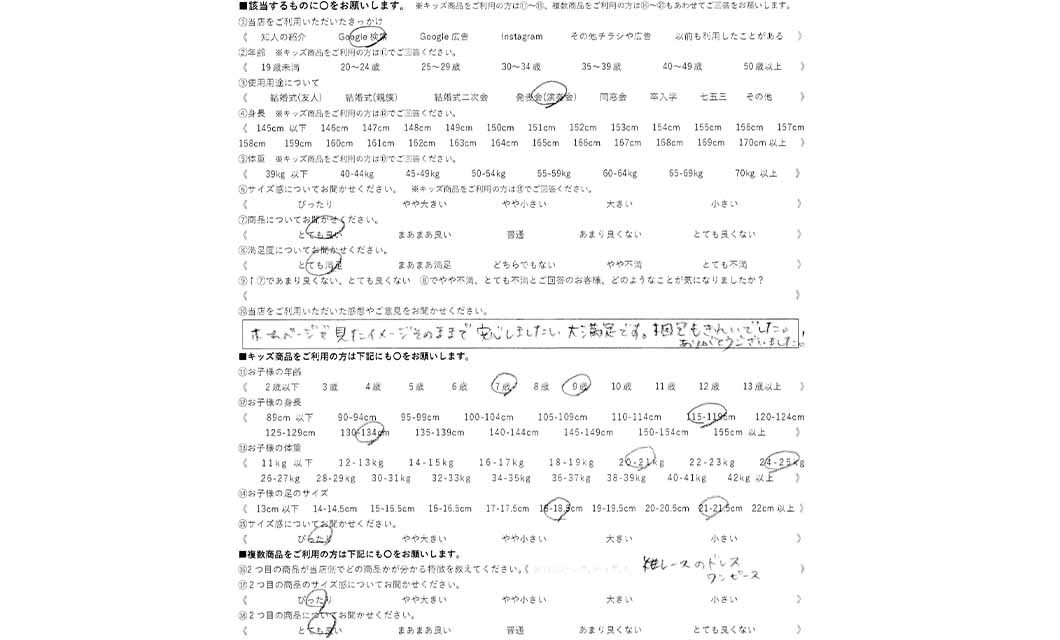 ■該当するものに〇をお願いします。 ※キッズ商品をご利用の方は⑪～⑮、複数商品をご利用の方は⑯～⑳もあわせてご回答をお願いします。
①当店をご利用いただいたきっかけ
《 知人の紹介 Google 検索 Google 広告 Instagram その他チラシや広告 以前も利用したことがある 》
②年齢 ※キッズ商品をご利用の方は⑪でご回答ください。
《 19歳未満 20～24歳 25～29歳 30～34歳 35～39歳 40～49歳 50歳以上 》
③使用用途について
《 結婚式(友人) 結婚式(親族) 結婚式二次会 発表会(演奏会) 同窓会 卒入学 七五三 その他 》
④身長 ※キッズ商品をご利用の方は⑫でご回答ください。
《 145cm 以下 146cm 147cm 148cm 149cm 150cm 151cm 152cm 153cm 154cm 155cm 156cm 157cm
158cm 159cm 160cm 161cm 162cm 163cm 164cm 165cm 166cm 167cm 168cm 169cm 170cm 以上 》
⑤体重 ※キッズ商品をご利用の方は⑬でご回答ください。
《 39kg 以下 40-44kg 45-49kg 50-54kg 55-59kg 60-64kg 65-69kg 70kg 以上 》
⑥サイズ感についてお聞かせください。 ※キッズ商品をご利用の方は⑮でご回答ください。
《 ぴったり やや大きい やや小さい 大きい 小さい 》
⑦商品についてお聞かせください。
《 とても良い まあまあ良い 普通 あまり良くない とても良くない 》
⑧満足度についてお聞かせください。
《 とても満足 まあまあ満足 どちらでもない やや不満 とても不満 》
⑨↑⑦であまり良くない、とても良くない ⑧でやや不満、とても不満とご回答のお客様、どのようなことが気になりましたか？
《 》
⑩当店をご利用いただいた感想やご意見をお聞かせください。
ホームページで見たイメージそのままで安心しましたし、大満足です。梱包もきれいでした。
ありがとうございました!
■キッズ商品をご利用の方は下記にも〇をお願いします。
⑪お子様の年齢
《 2歳以下 3歳 4歳 5歳 6歳 7歳 8歳 9歳 10歳 11歳 12歳 13歳以上 》
⑫お子様の身長
《 89cm 以下 90-94cm 95-99cm 100-104cm 105-109cm 110-114cm 115-119cm 120-124cm
125-129cm 130-134cm 135-139cm 140-144cm 145-149cm 150-154cm 155cm 以上 》
⑬お子様の体重
《 11kg 以下 12-13kg 14-15kg 16-17kg 18-19kg 20-21kg 22-23kg 24-25kg
26-27kg 28-29kg 30-31kg 32-33kg 34-35kg 36-37kg 38-39kg 40-41kg 42kg 以上 》
⑭お子様の足のサイズ
《 13cm以下 14-14.5cm 15-15.5cm 16-16.5cm 17-17.5cm 18-18.5cm 19-19.5cm 20-20.5cm 21-21.5cm 22cm以上 》
⑮サイズ感についてお聞かせください。
《 ぴったり やや大きい やや小さい 大きい 小さい 》
■複数商品をご利用の方は下記にも〇をお願いします。
⑯2つ目の商品が当店側でどの商品かが分かる特徴を教えてください。《 レースのドレス
ワンピース
⑰2つ目の商品のサイズ感についてお聞かせください。
《 ぴったり やや大きい やや小さい 大きい 小さい 》
⑱2つ目の商品についてお聞かせください。
《 とても良い まあまあ良い 普通 あまり良くない とても良くない 》